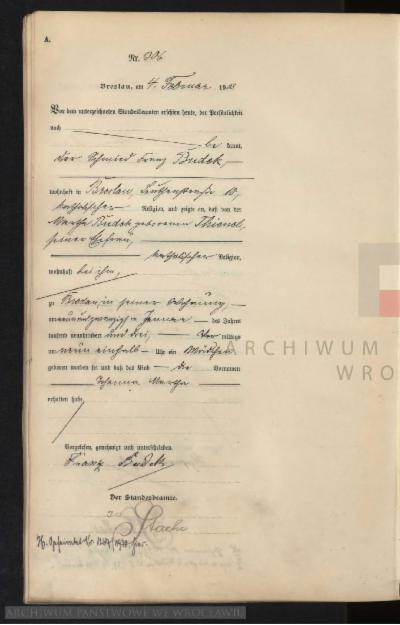 A.
Nr. 226
Breslau, am 4. Februar 190
Vor dem unterzeichneten Standesbeamten erschien heute, der Persönlichkeit
nach be kannt,
der Schmied Franz Budek,
wohnhaft in Breslau, 10,
katholischer Religion, und zeigte an, daß von der
Martha Budek geborenen Thienel,
seiner Ehefrau,
katholischer Religion,
wohnhaft bei ihm,
zu Breslau, in seiner Wohnung,
am neunundzwanzigsten Januar des Jahres
tausend neunhundert und drei, Vor mittags
um neun einhalb Uhr ein Mädchen
geboren worden sei und daß das Kind die Vornamen
Johanna Martha
erhalten habe.
Vorgelesen, genehmigt und unterschrieben
Franz Budek
Der Standesbeamte.
Stache
ARCHIWUM
WRO
ARCHIWUM PAŃSTWOWE WE WROCŁAWIU